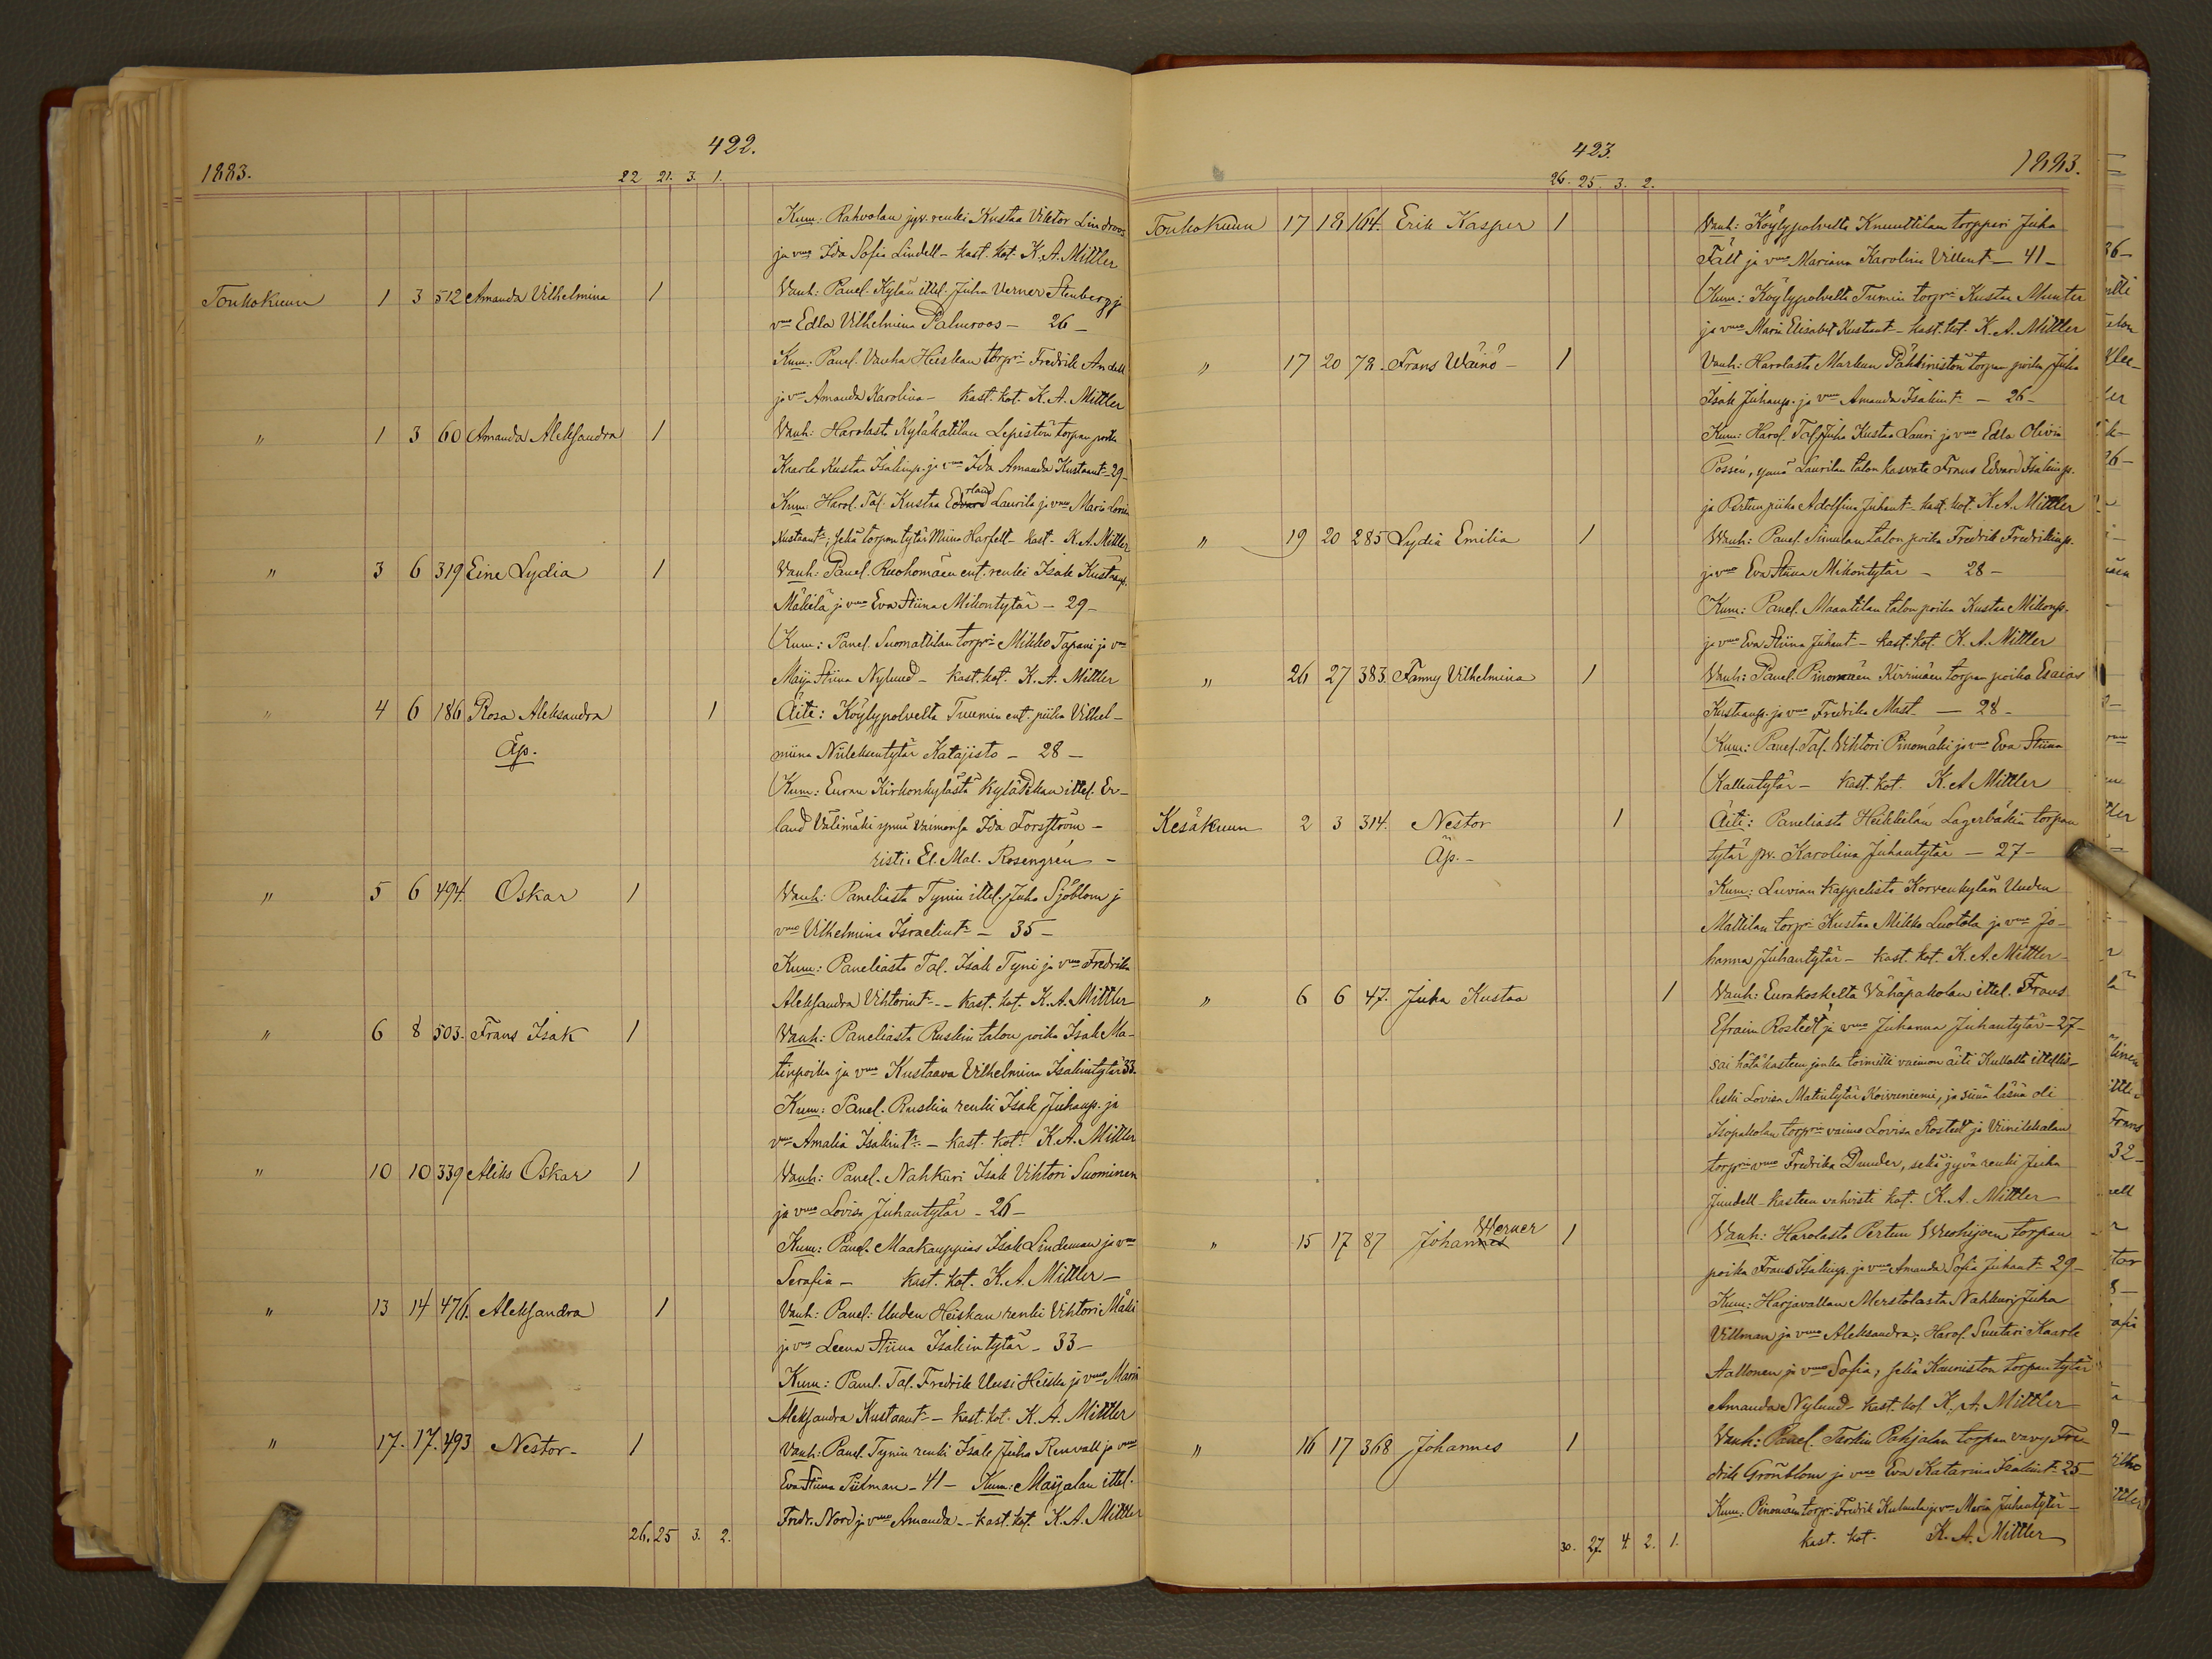 422.
1883.
22 21. 3. 1.
Kum: Rahvolan jyv. renki Kustaa Viktor Lindroos
ja vmo Ida Sofia Lindell - kast. kat. K. A. Mittler
Toukokuun 1 3 512 Amanda Vilhelmina 1 Vanh: Panel. Kylän ittel. Juha Verner Stenberg ja
vmo Edla Vilhelmina Palmroos - 26 -
Kum: Panel. Vanha Heiskan torpri Fredrik Andell
ja vmo Amanda Karolina - kast. kat. K. A. Mittler
" 1 3 60 Amanda Aleksandra 1 Vanh: Harolasta Kyläkatilan Lepistön torpan poika
Kaarle Kustaa Isakinp. ja vmo Ida Amanda Kustaant. 29 -
Kum: Harol. Tal. Kustaa Edvard Laurila ja vmo Maria Lovisa
Kustaantr, sekä torpan tytär Miina Harfelt - kast. K. A. Mittler
" 3 6 319 Eine Lydia 1 Vanh: Panel. Ruohomäen ent. renki Isak Kustaap.
Mäkilä ja vmo Eva Stiina Mikontytär - 29 -
Kum: Panel. Suomattilan torpri Mikko Tapani ja vmo
Maija Stiina Nylund - kast. kat. K. A. Mittler
" 4 6 186 Rosa Aleksandra 1 Äiti: Köylypolvelta Tuumin ent. piika Vilhel-
Äp. miina Niileksentytär Katajisto - 28 -
Kum: Euran Kirkonkylästä Kylä Pekan ittel. Er-
land Välimäki ynnä vaimonsa Ida Forsström -
risti. El. Mal. Rosengrén -
" 5 6 494. Oskar 1 Vanh: Paneliasta Tynin ittel. Juha Sjöblom j
vmo Vilhelmina Israelintr - 35 -
Kum: Paneliasta Tal. Isak Tyni ja vmo Fredrika
Aleksandra Vihtorintr - kast. kat. K. A. Mittler
" 6 8 503. Frans Isak 1 Vanh: Paneliasta Ruskin talon poika Isak Ma-
tinpoika ja vmo Kustaava Vilhelmina Isakintytär 33.
Kum: Panel. Ruskin renki Isak Juhanp. ja
vmo Amalia Isakintr. - kast. kat. K. A. Mittler
" 10 10 339 Aliks Oskar 1 Vanh: Panel. Nahkuri Isak Vihtori Suominen
ja vmo Lovisa Juhantytär - 26 -
Kum: Panel. Maakauppias Isak Lindeman ja vmo
Serafia - kast. kat. K. A. Mittler -
" 13 14 476. Aleksandra 1 Vanh: Panel: Uuden Heiskan renki Vihtori Mäki
ja vmo Leena Stiina Isakintytär - 33 -
Kum: Panel. Tal. Fredrik Uusi Heiska ja vmo Maria
Aleksandra Kustaantr - kast. kat. K. A. Mittler
" 17. 17. 493 Nestor - 1 Vanh: Panel. Tynin renki Isak Juha Renvall ja vmo
Eva Stiina Piilman - 41 - Kum: Maijalan ittel.
Fredr. Nord ja vmo Amanda - kast. kat. K. A. Mittler
26. 25 3. 2.
423.
1883.
26. 25. 3. 2.
Toukokuun 17 18 164. Erik Kasper 1 Vanh: Köylypolvelta Knuuttilan torppari Juha
Fält ja vmo Mariana Karolina Villent. - 41 -
Kum: Köylypolvelta Tumin torpri Kustaa Munter
ja vmo Maria Elisabet Kustaat - kast. kat. K. A. Mittler
" 17 20 78. Frans Wäinö - 1 Vanh: Harolasta Markun Pähkinistön torpan poika Juha
Isak Juhanp. ja vmo Amanda Isakintr - 26 -
Kum: Harol. Tal. Juha Kustaa Lauri ja vmo Edla Olivia
Possén, ynnä Laurilan talon kasvate Frans Edvard Isakinp.
ja Pertun piika Adolfina Juhant. - kast. kat. K. A. Mittler
" 19 20 285 Lydia Emilia 1 Vanh: Panel. Sinulan talon poika Fredrik Fredrikinp.
ja vmo Eva Stiina Mikontytär - 28 -
Kum: Panel. Maantilan talon poika Kustaa Mikonp.
ja vmo Eva Stiina Juhant - kast. kat. K. A. Mittler
" 26 27 383. Fanny Vilhelmina 1 Vanh: Panel. Pinomäen Kirrinäen torpan poika Esaias
Kustaanp. ja vmo Fredrika Mast. - 28 -
Kum: Panel. Tal. Vihtori Pinomäki ja vmo Eva Stiina
Kallentytär - kast. kat. K. A Mittler
Kesäkuun 2 3 314. Nestor 1 Äiti: Paneliasta Heikkilän Lagerbäkin torpan
Äp. - tytär pv. Karolina Juhantytär - 27 -
Kum: Luvian kappelista Korvenkylän Uuden
Mattilan torpri Kustaa Mikko Luotola ja vmo Jo-
hanna Juhantytär - kast. kat. K. A. Mittler -
" 6 6 47. Juha Kustaa 1 Vanh: Eurakoskelta Vähäpakolan ittel. Frans
Efraim Rostedt ja vmo Juhanna Juhantytär - 27 -
sai hätäkasteen jonka toimitti vaimon äiti Kullalta itellis-
leski Lovisa Matintytär Koivuniemi, ja siinä läsnä oli
Isopakolan torprin vaimo Lovisa Rostedt ja Viinikkalan
torprin vmo Fredrika Dunder, sekä jyvä renki Juha
Jundell - kasteen vahvisti kat. K. A. Mittler
" 15 17 87 Johannes Werner 1 Vanh: Harolasta Pertun Wuohijoen torpan
poika Frans Isakinp. ja vmo Amanda Sofia Juhant. 29 -
Kum: Harjavallan Merstolasta Nahkuri Juha
Villman ja vmo Aleksandra; Harol. Suutari Kaarle
Aallonen ja vmo Sofia, sekä Kauniston torpan tytär
Amanda Nylund - kast. kat. K. A. Mittler
" 16 17 368 Johannes 1 Vanh: Panel. Tarkin Pahjalan torpan vävy Fre-
drik Grönblom ja vmo Eva Katarina Isakint. 25 -
Kum: Pinomäen torpri Fredrik Kulmala ja vmo Maria Juhantytär -
kast. kat. K. A. Mittler
30. 27. 4. 2. 1.